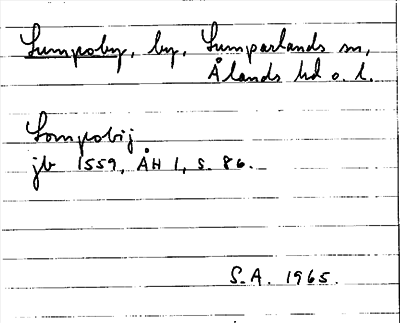 Lumpoby, by, Lumparlands sn,
Ålands hd o. l.
Lompobij
jb 1559, ÅH 1, s. 86.
S.A. 1965.